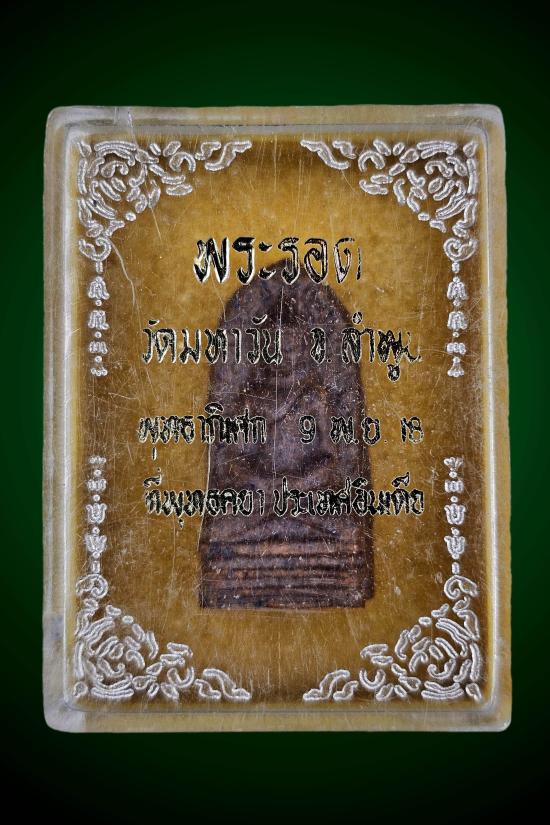 พระรอด
วัดมหาวัน จ.ลำพูน
พุทธาภิเษก 9 พ.ย. 18
ที่พุทธคยา ประเทศอินเดีย